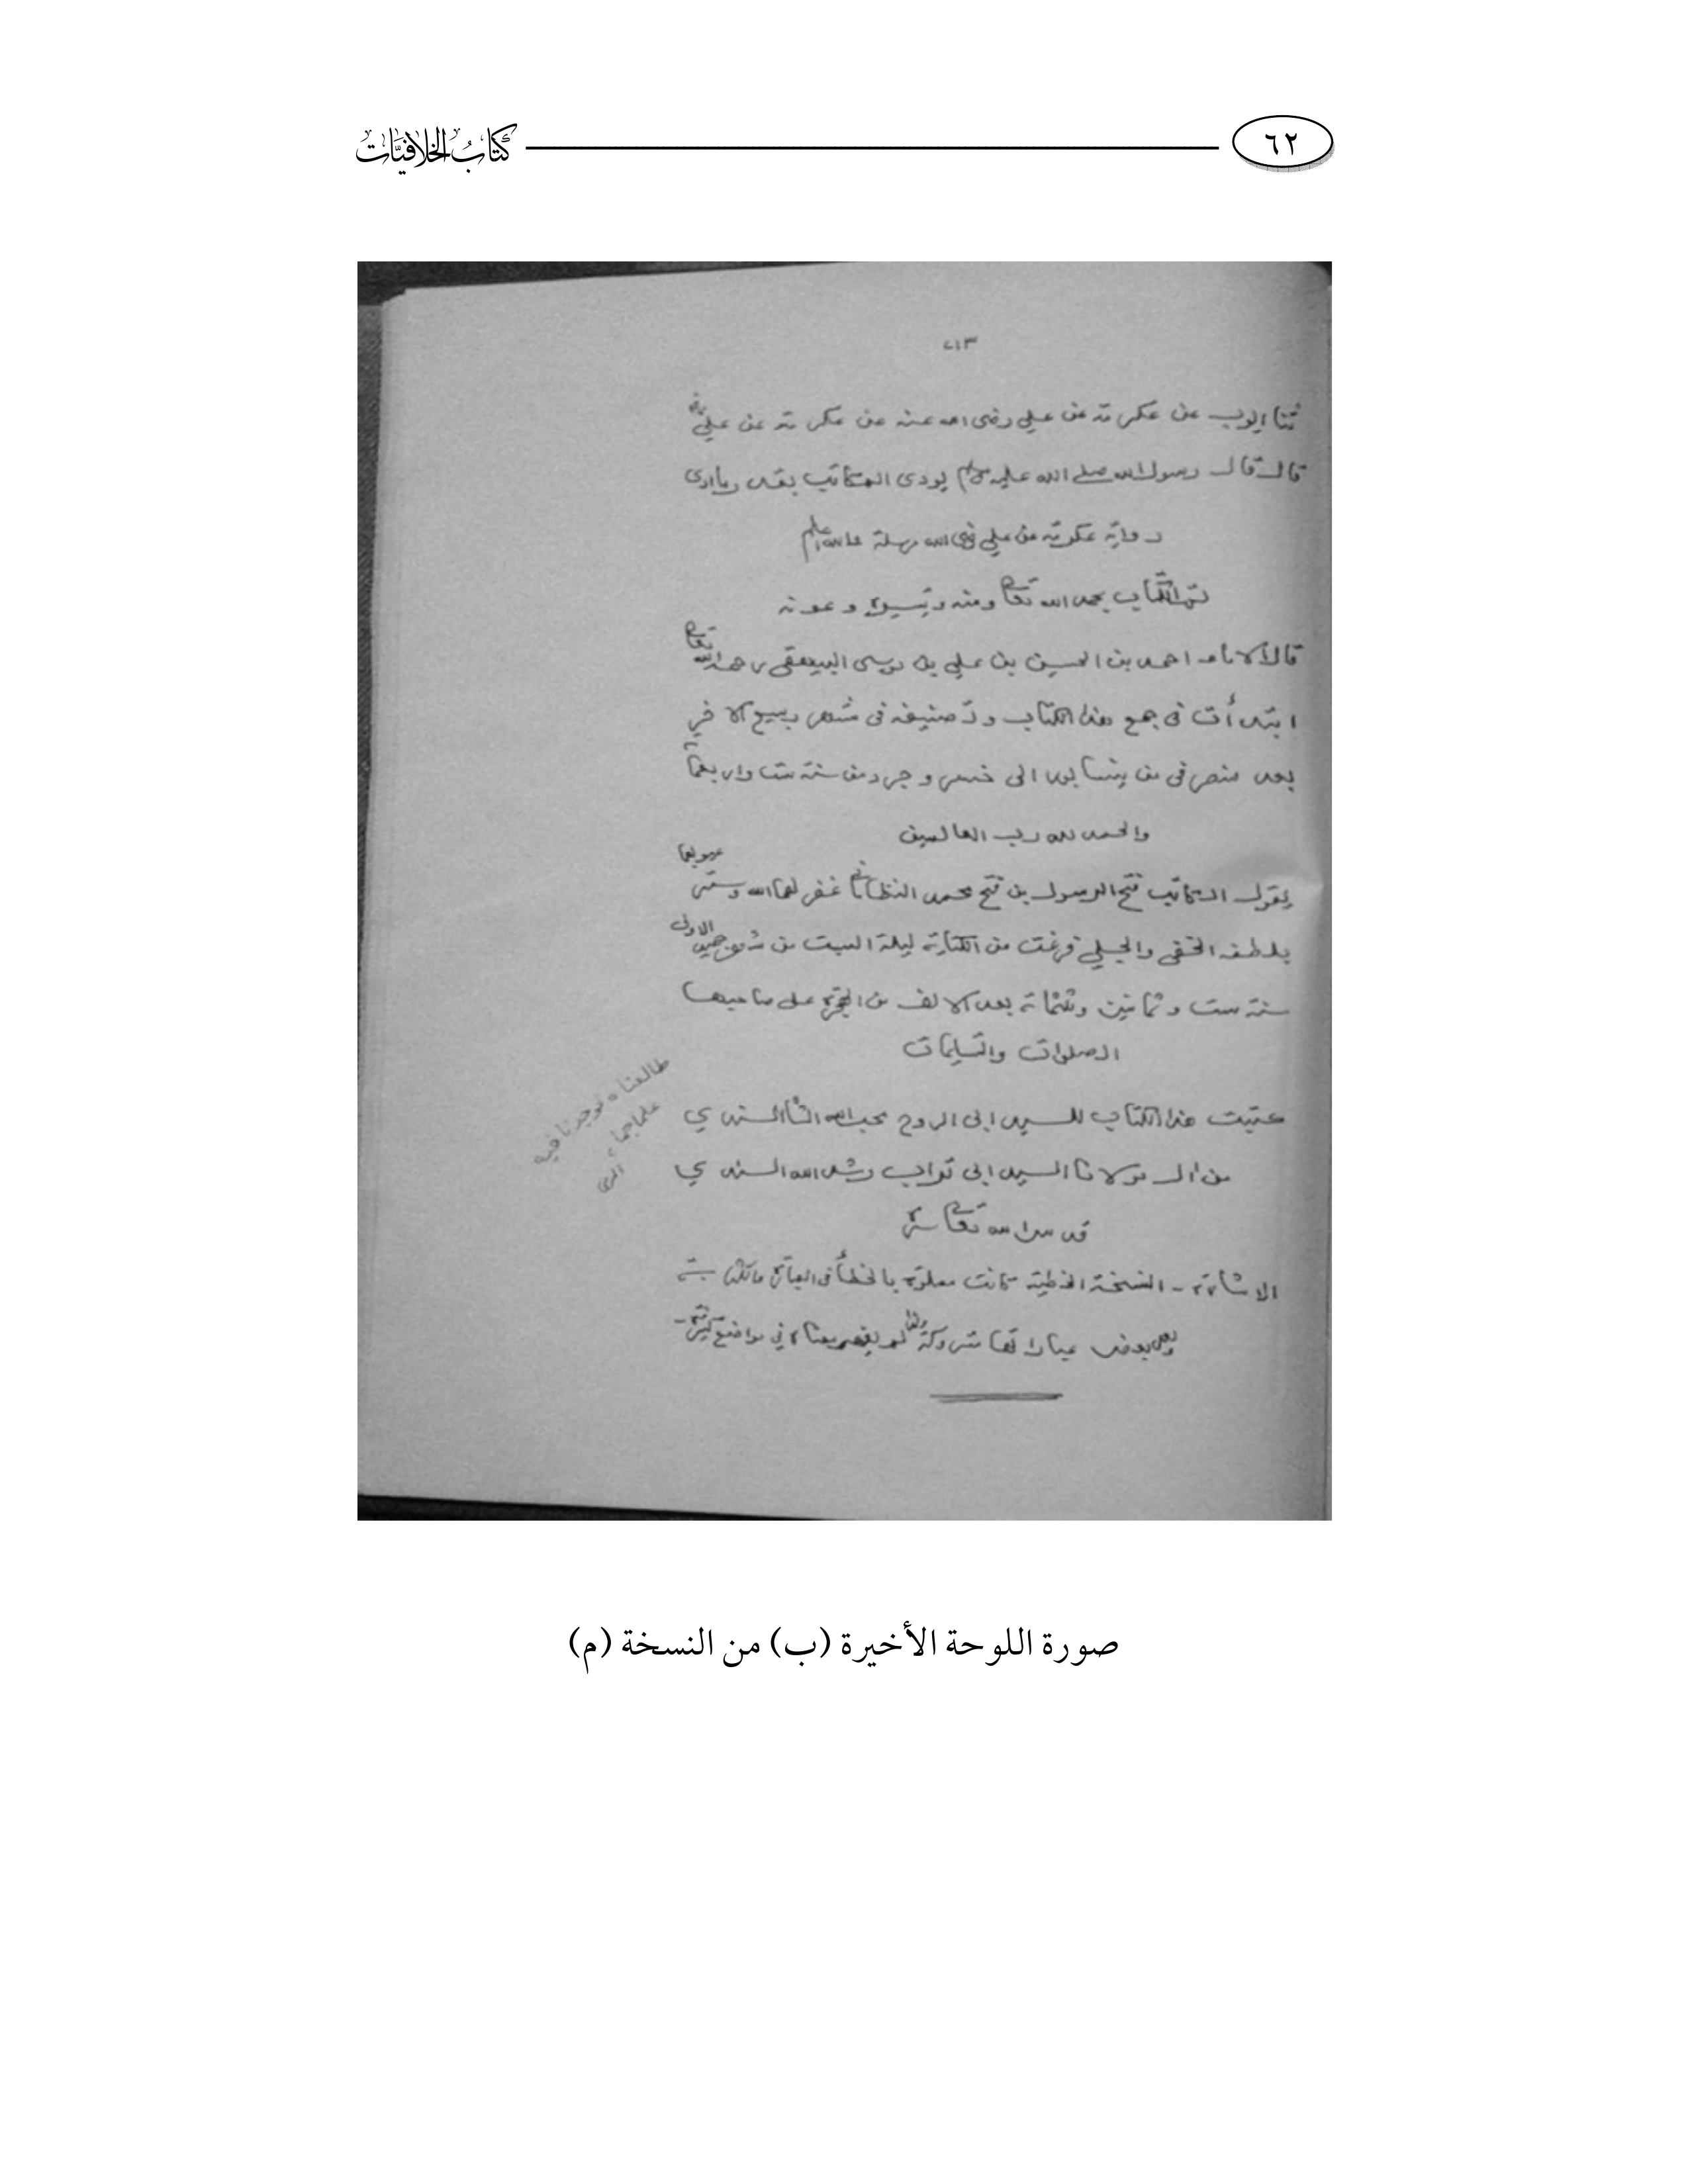 ٦٢
كتاب الخلافيات
٧١٣
ثنا ايوب عن عكرمة عن علي رضى الله عنه عن عكرمة عن علي
قال قال رسول الله صلى الله عليه وسلم يودى المكاتب بقدر ما ادى
رواية عكرمة عن علي رضى الله مرسلة والله اعلم
تم الكتاب بحمد الله تعالى ومنه وتيسيره وعونه
قال الامام احمد بن الحسين بن علي بن موسى البيهقى رحمه الله تعالى
ابتدأت فى جمع هذا الكتاب وتصنيفه فى شهر ربيع الاخر
بعد منصرفى من نيسابور الى خسروجرد من سنة ست واربعمائة
والحمد لله رب العالمين
يقول الكاتب فتح الرسول بن فتح محمد النظامانى غفر لهما الله وستر عيوبهما
بلطفه الخفى والجلي فرغت من الكتابة ليلة السبت من شهر جميد الاولى
سنة ست وثمانين وثلثمائة بعد الالف من الهجرة على صاحبها
الصلوات والتسليمات
كتبت هذا الكتاب للسيد ابى الروح محب الله الشاه السندي
من ال مولانا السيد ابى تراب رشد الله السندي
قدس الله تعالى سره
الاشارة - النسخة الخطية كانت مملوة بالخطأ فى العبارة
وبعض عباراتها متروكة لم يفهم معناه في مواضع كثيرة
طالعناه فوجدنا فيه
علما جما
صورة اللوحة الأخيرة (ب) من النسخة (م)